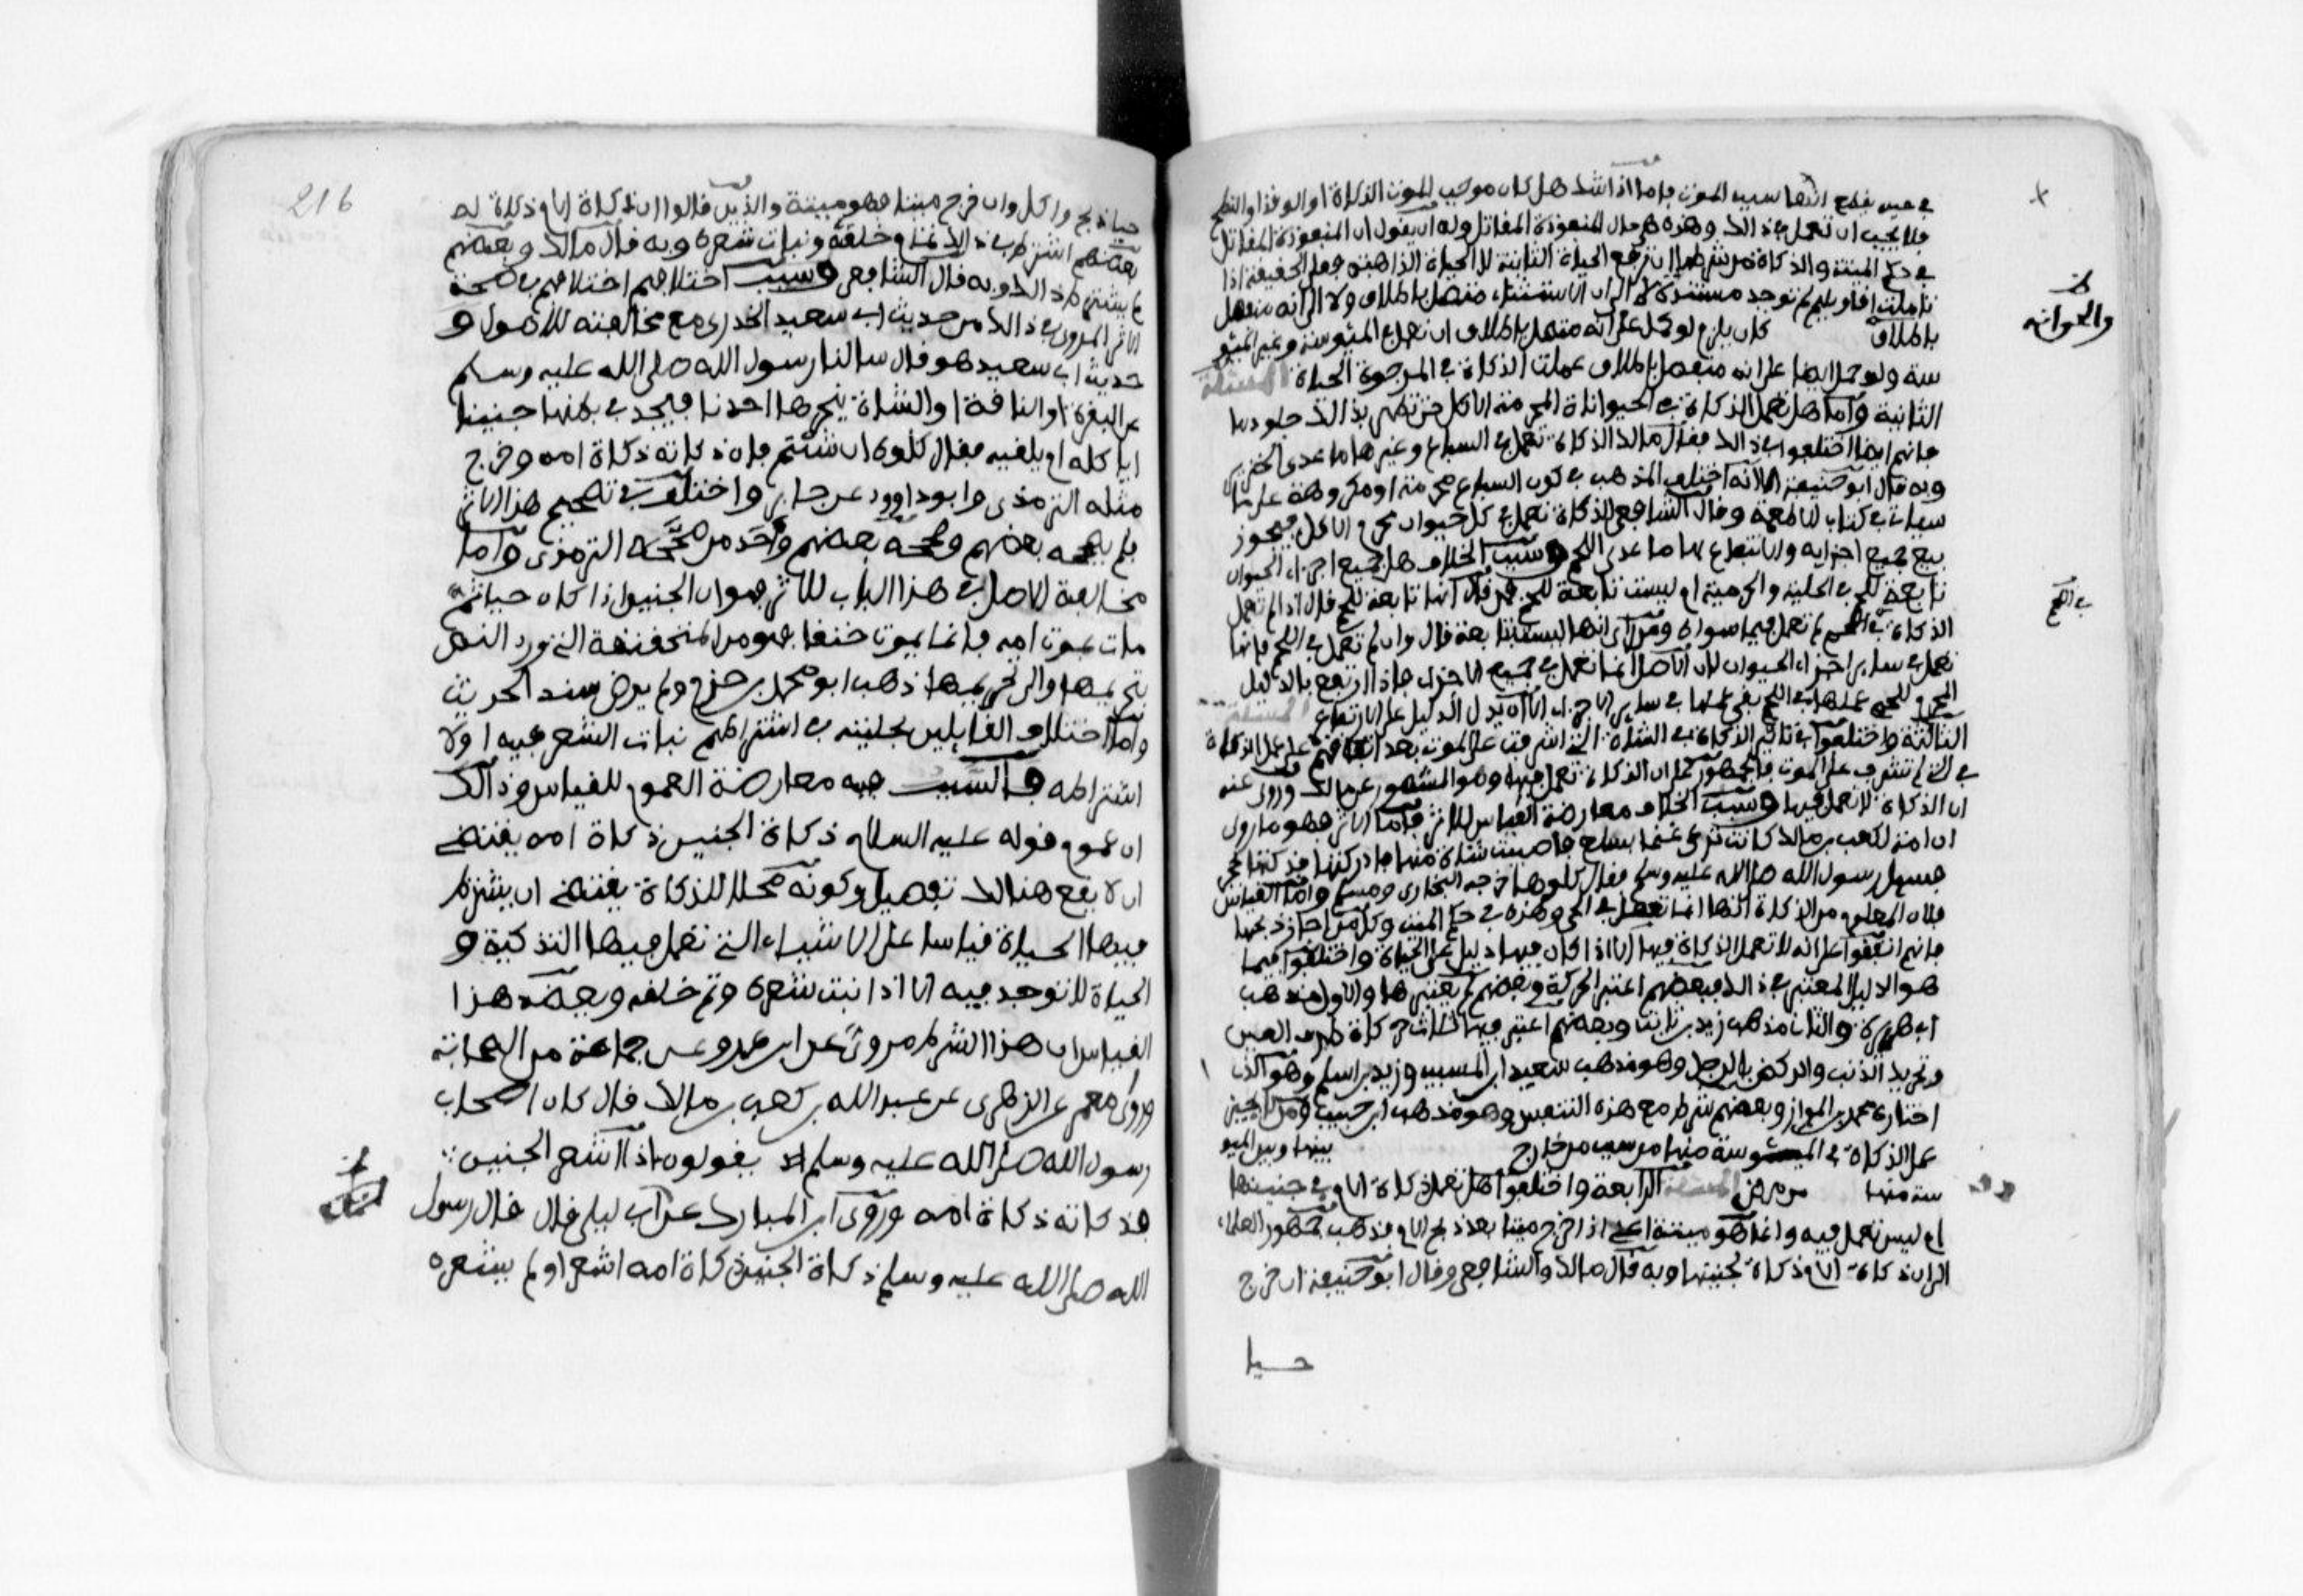 في حين يقطع انها سبب الموت فاما اذا شك هل كان موجب الموت الذكاة او الوقذ او النطح
فلا يجب ان تعمل في ذالك وهذه هي حال المنفوذة المقاتل وله ان يقول ان المنفوذة المقاتل
في حكم الميتة والذكاة من شرطها ان ترفع الحياة الثابتة لا الحياة الذاهبة
باطلاق كان يلزم لو حمل على انه متصل باطلاق ان تعمل في الميئوسة وغير الميئو
سة ولو حمل ايضا على انه منفصل باطلاق عملت الذكاة في المرجوة الحياة المسئلة
الثانية واما هل تعمل الذكاة في الحيوانات المحرمة الاكل حتى تطهر بذالك جلودها
فانهم ايضا اختلفوا في ذالك فقال مالك الذكاة تعمل في السباع وغيرها ما عدى الخنزير
وبه قال ابو حنيفة الا انه اختلف المذهب في كون السباع محرمة او مكروهة على ما
سياتي في كتاب الاطعمة وقال الشافعي الذكاة تعمل في كل حيوان محرم الاكل فيجوز
بيع جميع اجزايه والانتفاع بها ما عدى اللحم وسبب الخلاف هل جميع اجزاء الحيوان
تابعة للحم في الحلية والحرمية ام ليست تابعة للحم فمن قال انها تابعة للحم قال اذا لم تعمل
الذكاة في اللحم لم تعمل فيما سواه ومن راى انها ليست تابعة قال وان لم تعمل في اللحم فانها
تعمل في ساير اجزاء الحيوان لان الاصل انها تعمل في جميع الاجزاء فاذا ارتفع بالدليل
المحرم للحم عملها في اللحم بقي عملها في ساير الاجزاء الا ان يدل الدليل على ارتفاعه المسئلة
الثالثة واختلفوا في تاثير الذكاة في الشاة التي اشرفت على الموت بعد اتفاقهم على عمل الذكاة
في التي لم تشرف على الموت فالجمهور على ان الذكاة تعمل فيها وهو المشهور عن مالك وروى عنه
ان الذكاة لا تعمل فيها وسبب الخلاف معارضة القياس للاثر فاما الاثر فهو ما روى
ان امة لكعب بن مالك كانت ترعى غنما بسلع فاصيبت شاة منها فادركتها فذكتها بحجر
فسيل رسول الله صلى الله عليه وسلم فقال كلوها خرجه البخاري ومسلم واما القياس
فلان المعلوم من الذكاة انها انما تفعل في الحي وهذه في حكم الميت وكل من اجاز ذبحها
فانهم اتفقوا على انه لا تعمل الذكاة فيها الا اذا كان فيها دليل على الحياة واختلفوا فيما
هو الدليل المعتبر في ذالك فبعضهم اعتبر الحركة وبعضهم لم يعتبرها والاول مذهب
ابي هريرة والثاني مذهب زيد بن ثابت وبعضهم اعتبر فيها ثلاث حركات طرف العين
وتحريك الذنب والركض بالرجل وهو مذهب سعيد ابن المسيب وزيد بن اسلم وهو الذي
اختاره محمد بن المواز وبعضهم شرط مع هذه التنفس وهو مذهب ابن حبيب
عمل الذكاة في الميئوسة منها من سبب من خارج بينها وبين الميو
سة منها من مرض المسئلة الرابعة واختلفوا هل تعمل ذكاة الام في جنينها
ام ليس تعمل فيه وانما هو ميتة اعني اذا خرج ميتا بعد ذبح الام فذهب جمهور العلماء
الى ان ذكاة الام ذكاة لجنينها وبه قال مالك والشافعي وقال ابو حنيفة ان خرج
حيا
والحوانه
في اللحم
216
حيا ذبح واكل وان خرج ميتا فهو ميتة والذين قالوا ان ذكاة الام ذكاة له
بعضهم اشترط في ذالك تمام خلقته ونبات شعره وبه قال مالك وبعضهم
لم يشترط ذالك وبه قال الشافعي وسبب اختلافهم اختلافهم في صحة
الاثر المروى في ذالك من حديث ابي سعيد الخدري مع مخالفته للاصول و
حديث ابي سعيد هو قال سالنا رسول الله صلى الله عليه وسلم
عن البقرة او الناقة او الشاة ينحرها احدنا فيجد في بطنها جنينا
اياكله ام يلقيه فقال كلوه ان شئتم فان ذكاته ذكاة امه وخرج
مثله الترمذي وابو داوود عن جابر واختلف في تصحيح هذا الاثر
فلم يصححه بعضهم وصححه بعضهم واحد من صححه الترمذي واما
مخالفة الاصل في هذا الباب للاثر فهو ان الجنين اذا كان حيا ثم
مات بموت امه فانما يموت خنقا فهو من المنخنقة التي ورد النص
بتحريمها والى تحريمها ذهب ابو محمد بن حزم ولم يرض سند الحديث
واما اختلاف القايلين بحليته في اشتراطهم نبات الشعر فيه او لا
اشتراطه فالسبب فيه معارضة العموم للقياس وذالك
ان عموم قوله عليه السلام ذكاة الجنين ذكاة امه يقتضي
ان لا يقع هنالك تفصيل وكونه محلا للذكاة يقتضي ان يشترط
فيها الحياة قياسا على الاشياء التي تعمل فيها التذكية و
الحياة لا توجد فيه الا اذا نبت شعره وتم خلقه ويعضد هذا
القياس ان هذا الشرط مروي عن ابن عمر وعن جماعة من الصحابة
وروى معمر عن الزهري عن عبد الله بن كعب بن مالك قال كان اصحاب
رسول الله صلى الله عليه وسلم يقولون اذا اشعر الجنين
فذكاته ذكاة امه وروى ابن المبارك عن ابي ليلى قال قال رسول
الله صلى الله عليه وسلم ذكاة الجنين ذكاة امه اشعر او لم يشعر